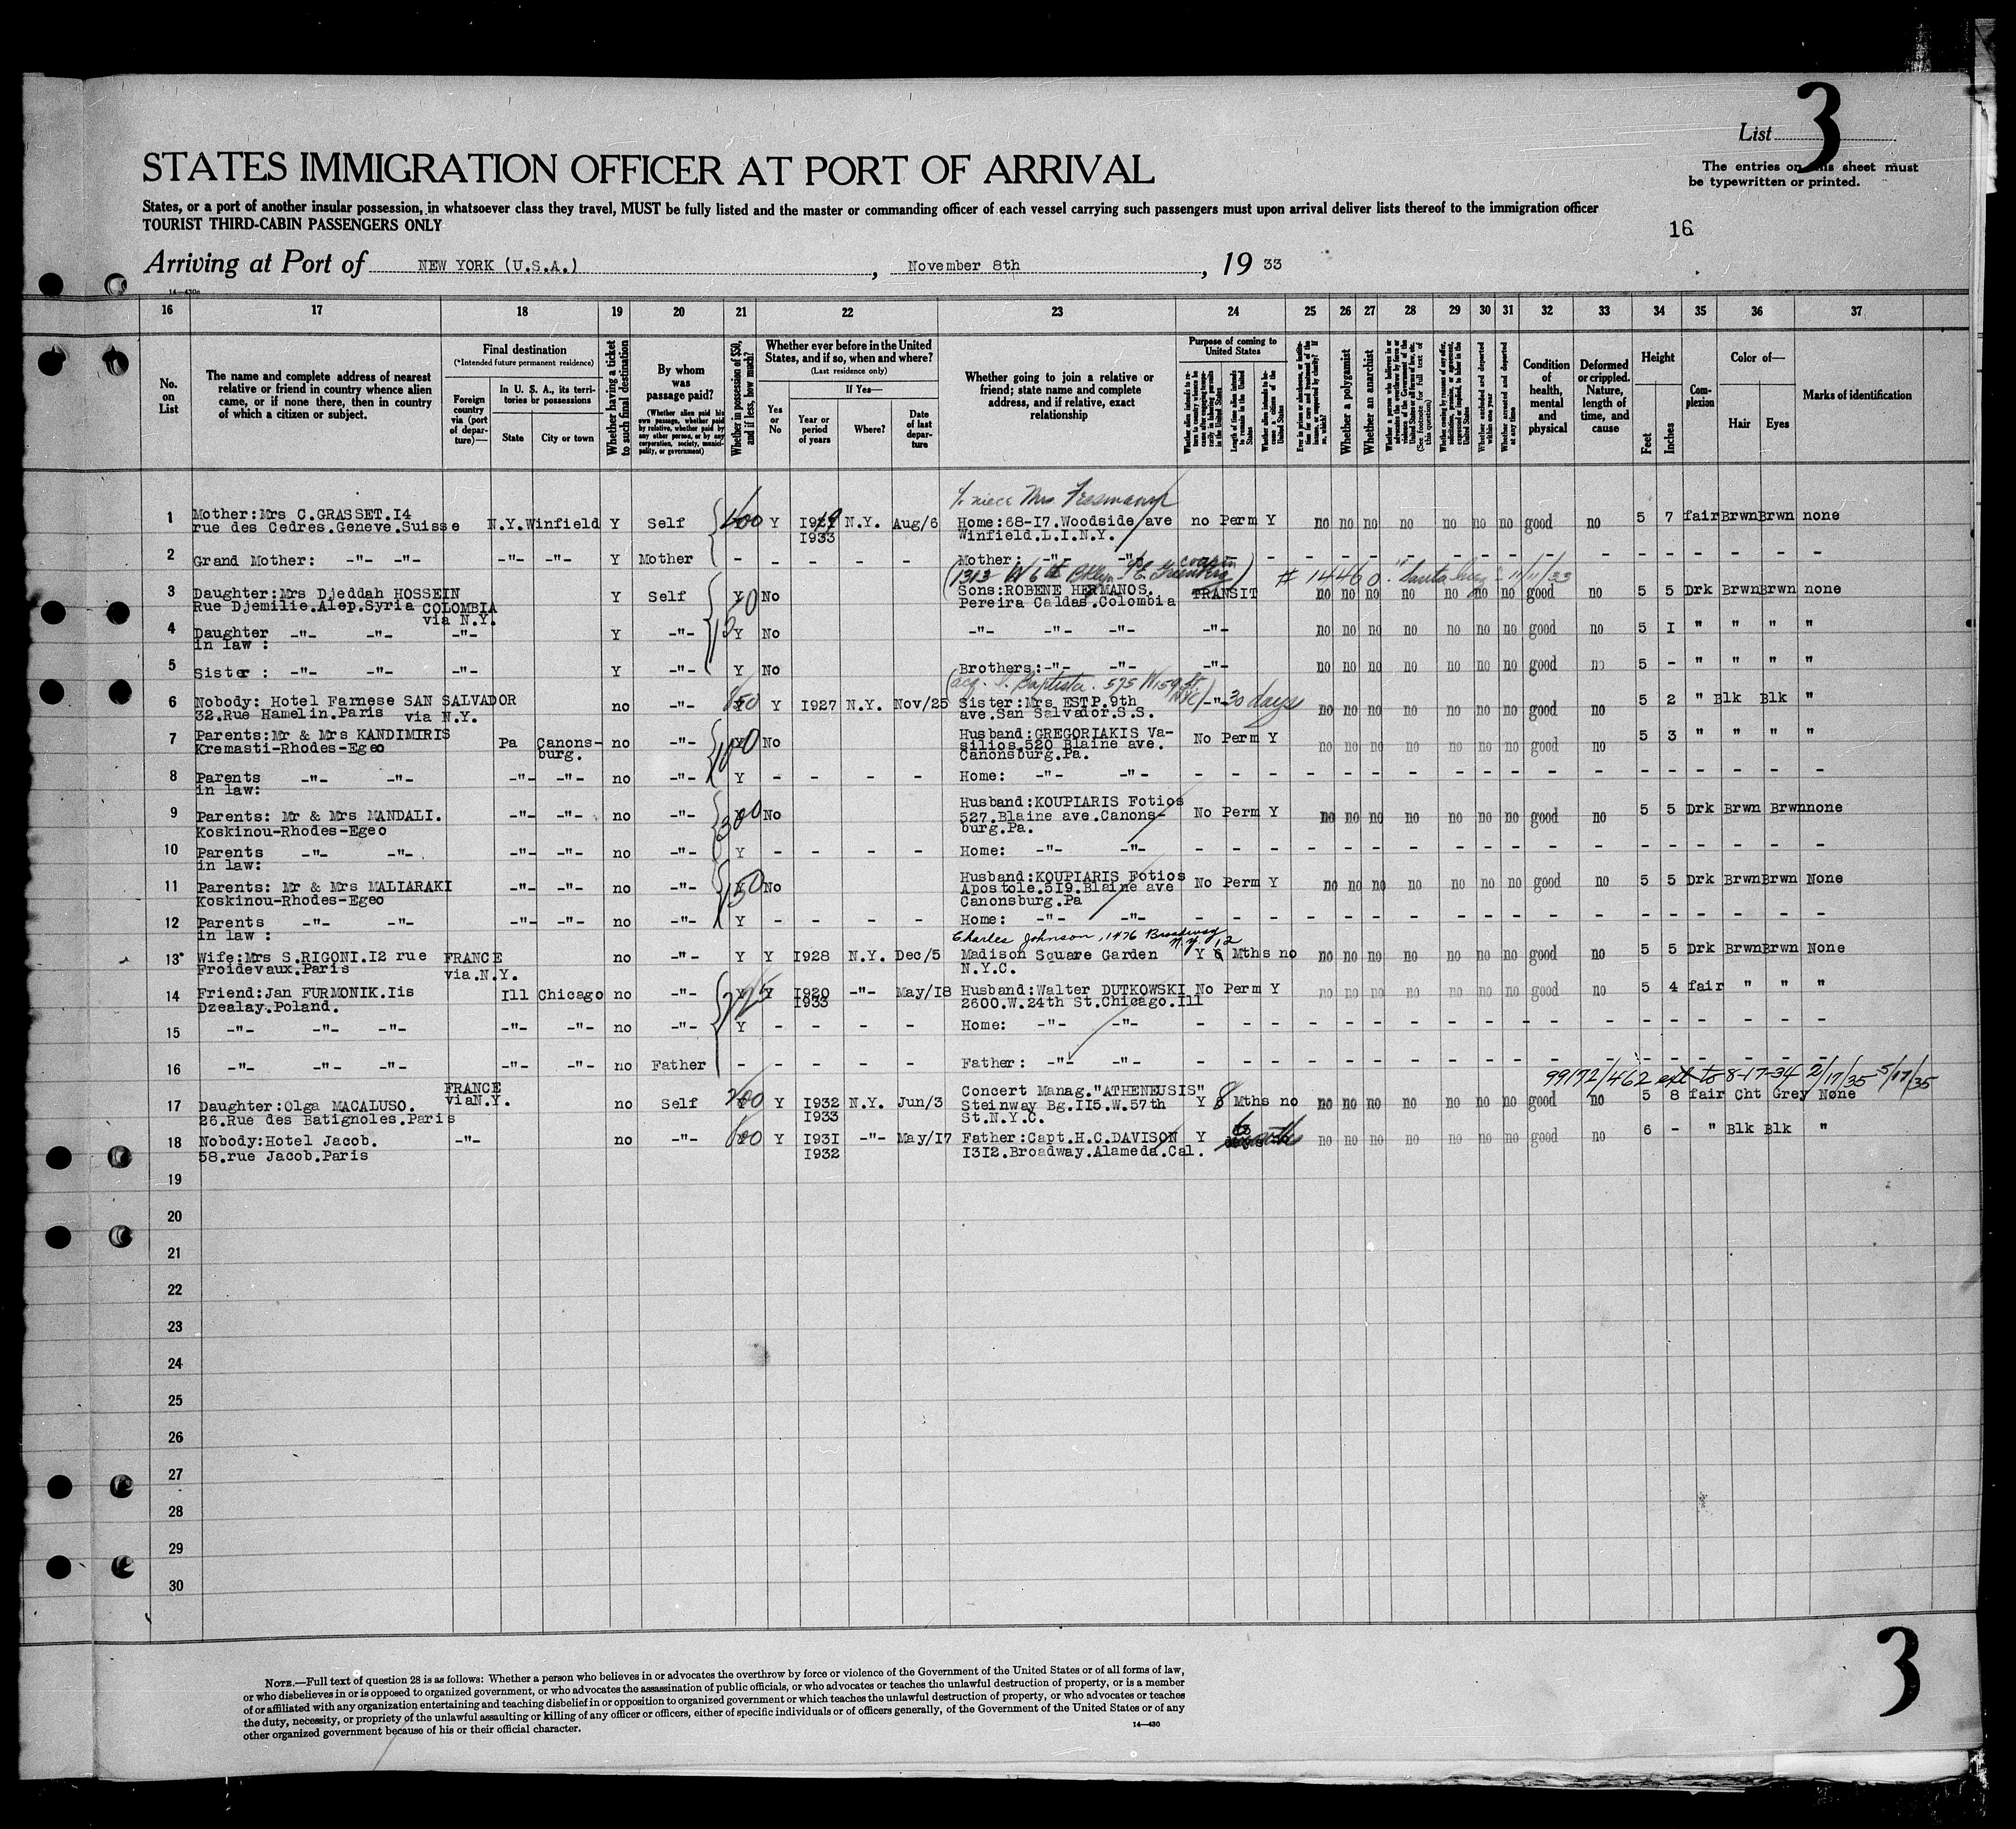 List 3
The entries on this sheet must
be typewritten or printed.
STATES IMMIGRATION OFFICER AT PORT OF ARRIVAL
States, or a port of another insular possession, in whatsoever class they travel, MUST be fully listed and the master or commanding officer of each vessel carrying such passengers must upon arrival deliver lists thereof to the immigration officer
TOURIST THIRD-CABIN PASSENGERS ONLY
16
Arriving at Port of NEW YORK (U.S.A.), November 8th, 19 33
16 17 18 19 20 21 22 23 24 25 26 27 28 29 30 31 32 33 34 35 36 37
No. on List
The name and complete address of nearest relative or friend in country whence alien came, or if none there, then in country of which a citizen or subject.
Final destination
(*Intended future permanent residence)
Foreign country via (port of departure)—
In U. S. A., its territories or possessions
State City or town
Whether having a ticket to such final destination
By whom was passage paid?
(Whether alien paid his own passage, whether paid by relative, whether paid by any other person, or by any corporation, society, municipality, or government)
Whether in possession of $50, and if less, how much?
Whether ever before in the United States, and if so, when and where?
(Last residence only)
Yes or No
If Yes—
Year or period of years
Where?
Date of last departure
Whether going to join a relative or friend; state name and complete address, and if relative, exact relationship
Purpose of coming to United States
Whether a polygamist
Whether an anarchist
Condition of health, mental and physical
Deformed or crippled. Nature, length of time, and cause
Height
Feet Inches
Complexion
Color of—
Hair Eyes
Marks of identification
1 Mother:Mrs C.GRASSET.I4 N.Y. Winfield Y Self Y I933 N.Y. Aug/6 Home:68-I7.Woodside ave no Perm Y no no no no no no no good no 5 7 fair Brwn Brwn none
rue des Cedres.Geneve.Suisse Winfield.L.I.N.Y.
2 Grand Mother: -"- -"- -"- -"- Y Mother - - - - - Mother: -"- -"-
# 14460 11/11/33
3 Daughter:Mrs Djeddah HOSSEIN Y Self Y No Sons:ROBENE HERMANOS. TRANSIT no no no no no no no good no 5 5 Drk Brwn Brwn none
Rue Djemilie.Alep.Syria COLOMBIA via N.Y. Pereira Caldas.Colombia
4 Daughter -"- -"- -"- Y -"- Y No -"- -"- -"- -"- no no no no no no no good no 5 I " " " "
in law :
5 Sister : -"- -"- -"- Y -"- Y No Brothers:-"- -"- -"- no no no no no no no good no 5 - " " " "
6 Nobody: Hotel Farnese SAN SALVADOR no -"- Y I927 N.Y. Nov/25 Sister:Mrs ESTP.9th -"- 30 days no no no no no no no good no 5 2 " Blk Blk "
32.Rue Hamelin.Paris via N.Y. ave.San Salvador.S.S.
7 Parents:Mr & Mrs KANDIMIRIS Pa Canonsburg. no -"- No Husband:GREGORIAKIS Va- No Perm Y no no no no no no no good no 5 3 " " " "
Kremasti-Rhodes-Egeo silios.520 Blaine ave.
Canonsburg.Pa.
8 Parents -"- -"- -"- -"- no -"- Y - - - - Home: -"- -"-
in law:
9 Parents: Mr & Mrs MANDALI. -"- -"- no -"- 300 No Husband:KOUPIARIS Fotios No Perm Y no no no no no no no good no 5 5 Drk Brwn Brwn none
Koskinou-Rhodes-Egeo 527.Blaine ave.Canons-
burg.Pa.
10 Parents -"- -"- -"- -"- no -"- Y - - - - Home: -"- -"-
in law:
11 Parents: Mr & Mrs MALIARAKI -"- -"- no -"- 150 No Husband:KOUPIARIS Fotios No Perm Y no no no no no no no good no 5 5 Drk Brwn Brwn None
Koskinou-Rhodes-Egeo Apostole.5I9.Blaine ave
Canonsburg.Pa
12 Parents -"- -"- -"- -"- no -"- Y - - - - Home: -"- -"-
in law :
Charles Johnson, 1476 Broadway N.Y. 12
13 Wife:Mrs S.RIGONI.I2 rue FRANCE no -"- Y Y I928 N.Y. Dec/5 Madison Square Garden Y Mths no no no no no no no no good no 5 5 Drk Brwn Brwn None
Froidevaux.Paris via.N.Y. N.Y.C.
14 Friend:Jan FURMONIK.Iis Ill Chicago no -"- Y I920 -"- May/I8 Husband:Walter DUTKOWSKI No Perm Y no no no no no no no good no 5 4 fair " " "
Dzealay.Poland. I933 2600.W.24th St.Chicago.Ill
15 -"- -"- -"- -"- -"- no -"- Y - - - - Home: -"- -"-
16 -"- -"- -"- -"- -"- no Father - - - - - Father: -"- -"-
99172/462 ext to 8-17-34 2/17/35 5/17/35
17 Daughter:Olga MACALUSO. FRANCE viaN.Y. no Self Y I932 N.Y. Jun/3 Concert Manag."ATHENEUSIS" Y 8 Mths no no no no no no no no good no 5 8 fair Cht Grey None
26.Rue des Batignoles.Paris I933 Steinway Bg.II5.W.57th
St.N.Y.C.
18 Nobody:Hotel Jacob. -"- no -"- Y I93I -"- May/I7 Father:Capt.H.C.DAVISON Y no no no no no no no good no 6 - " Blk Blk "
58.rue Jacob.Paris I932 I3I2.Broadway.Alameda.Cal.
19
20
21
22
23
24
25
26
27
28
29
30
NOTE.—Full text of question 28 is as follows: Whether a person who believes in or advocates the overthrow by force or violence of the Government of the United States or of all forms of law,
or who disbelieves in or is opposed to organized government, or who advocates the assassination of public officials, or who advocates or teaches the unlawful destruction of property, or is a member
of or affiliated with any organization entertaining and teaching disbelief in or opposition to organized government or which teaches the unlawful destruction of property, or who advocates or teaches
the duty, necessity, or propriety of the unlawful assaulting or killing of any officer or officers, either of specific individuals or of officers generally, of the Government of the United States or of any
other organized government because of his or their official character.
14—430
3